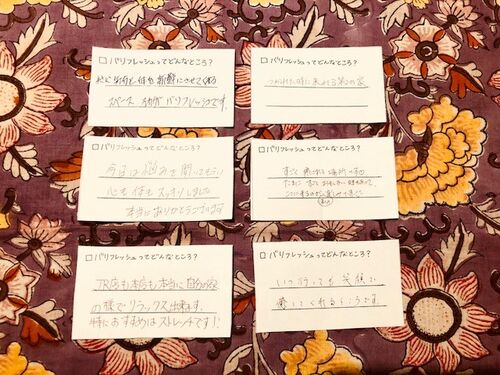 □ バリフレッシュってどんなところ?
スペース それが バリフレッシュです。
□ バリフレッシュってどんなところ?
つかれた時に来れる第2の家
□ バリフレッシュってどんなところ?
今日は悩みを聞いてもらい
心も体もスッキリしました
本当にありがとうございます
□ バリフレッシュってどんなところ?
すごく癒される場所です。
□ バリフレッシュってどんなところ?
JR店も本店も本当に自分の家
の様でリラックス出来ます。
特におすすめはストレッチです!
□ バリフレッシュってどんなところ?
いつ行っても笑顔で
癒してくれるところです。